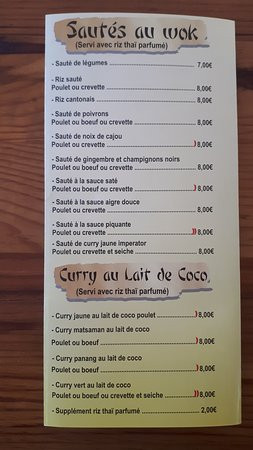 Sautés au wok
(Servi avec riz thaï parfumé)
- Sauté de légumes 7,00€
- Riz sauté
Poulet ou crevette 8,00€
- Riz cantonais 8,00€
- Sauté de poivrons
Poulet ou boeuf ou crevette 8,00€
- Sauté de noix de cajou
Poulet ou crevette 8,00€
- Sauté de gingembre et champignons noirs
Poulet ou boeuf ou crevette 8,00€
- Sauté à la sauce saté
Poulet ou boeuf ou crevette 8,00€
- Sauté à la sauce aigre douce
Poulet ou crevette 8,00€
- Sauté à la sauce piquante
Poulet ou crevette 8,00€
- Sauté de curry jaune imperator
Poulet ou crevette et seiche 8,00€
Curry au Lait de Coco
(Servi avec riz thaï parfumé)
- Curry jaune au lait de coco poulet 8,00€
- Curry matsaman au lait de coco
Poulet ou boeuf 8,00€
- Curry panang au lait de coco
Poulet ou boeuf 8,00€
- Curry vert au lait de coco
Poulet ou boeuf ou crevette et seiche 8,00€
- Supplément riz thaï parfumé 2,00€